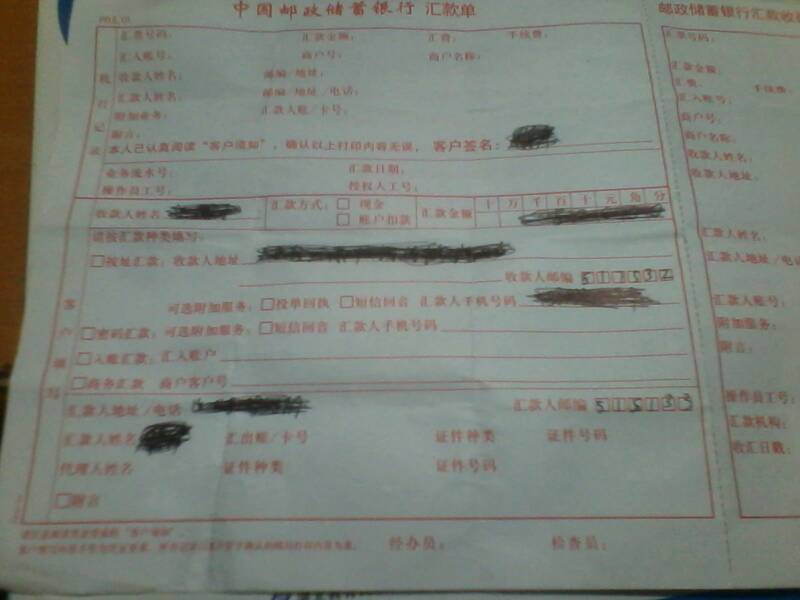 中国邮政储蓄银行 汇款单
汇票号码： 汇款金额： 汇费： 手续费：
汇入账号： 商户号： 商户名称：
收款人姓名： 邮编/地址：
汇款人姓名： 邮编/地址/电话：
附加业务： 汇款人账/卡号：
附言：
本人已认真阅读“客户须知”，确认以上打印内容无误， 客户签名：
业务流水号： 汇款日期：
操作员工号： 授权人工号：
收款人姓名 汇款方式： 现金 汇款金额 十 万 千 百 十 元 角 分
账户扣款
请按汇款种类填写：
按址汇款：收款人地址
收款人邮编 513532
可选附加服务： 投单回执 短信回音 汇款人手机号码
密码汇款：可选附加服务： 短信回音 汇款人手机号码
入账汇款：汇入账户
商务汇款 商户客户号
客户填写
汇款人地址/电话 汇款人邮编 515133
汇款人姓名 汇出账/卡号 证件种类 证件号码
代理人姓名 证件种类 证件号码
附言
经办员： 检查员：
邮政储蓄银行汇款收
汇票号码：
汇款金额：
汇费： 手续费：
汇入账号：
商户号：
商户名称：
收款人姓名：
收款人地址：
汇款人姓名：
汇款人地址/电话
汇款人账号：
附加服务：
附言：
操作员工号：
汇款机构：
收汇日戳：